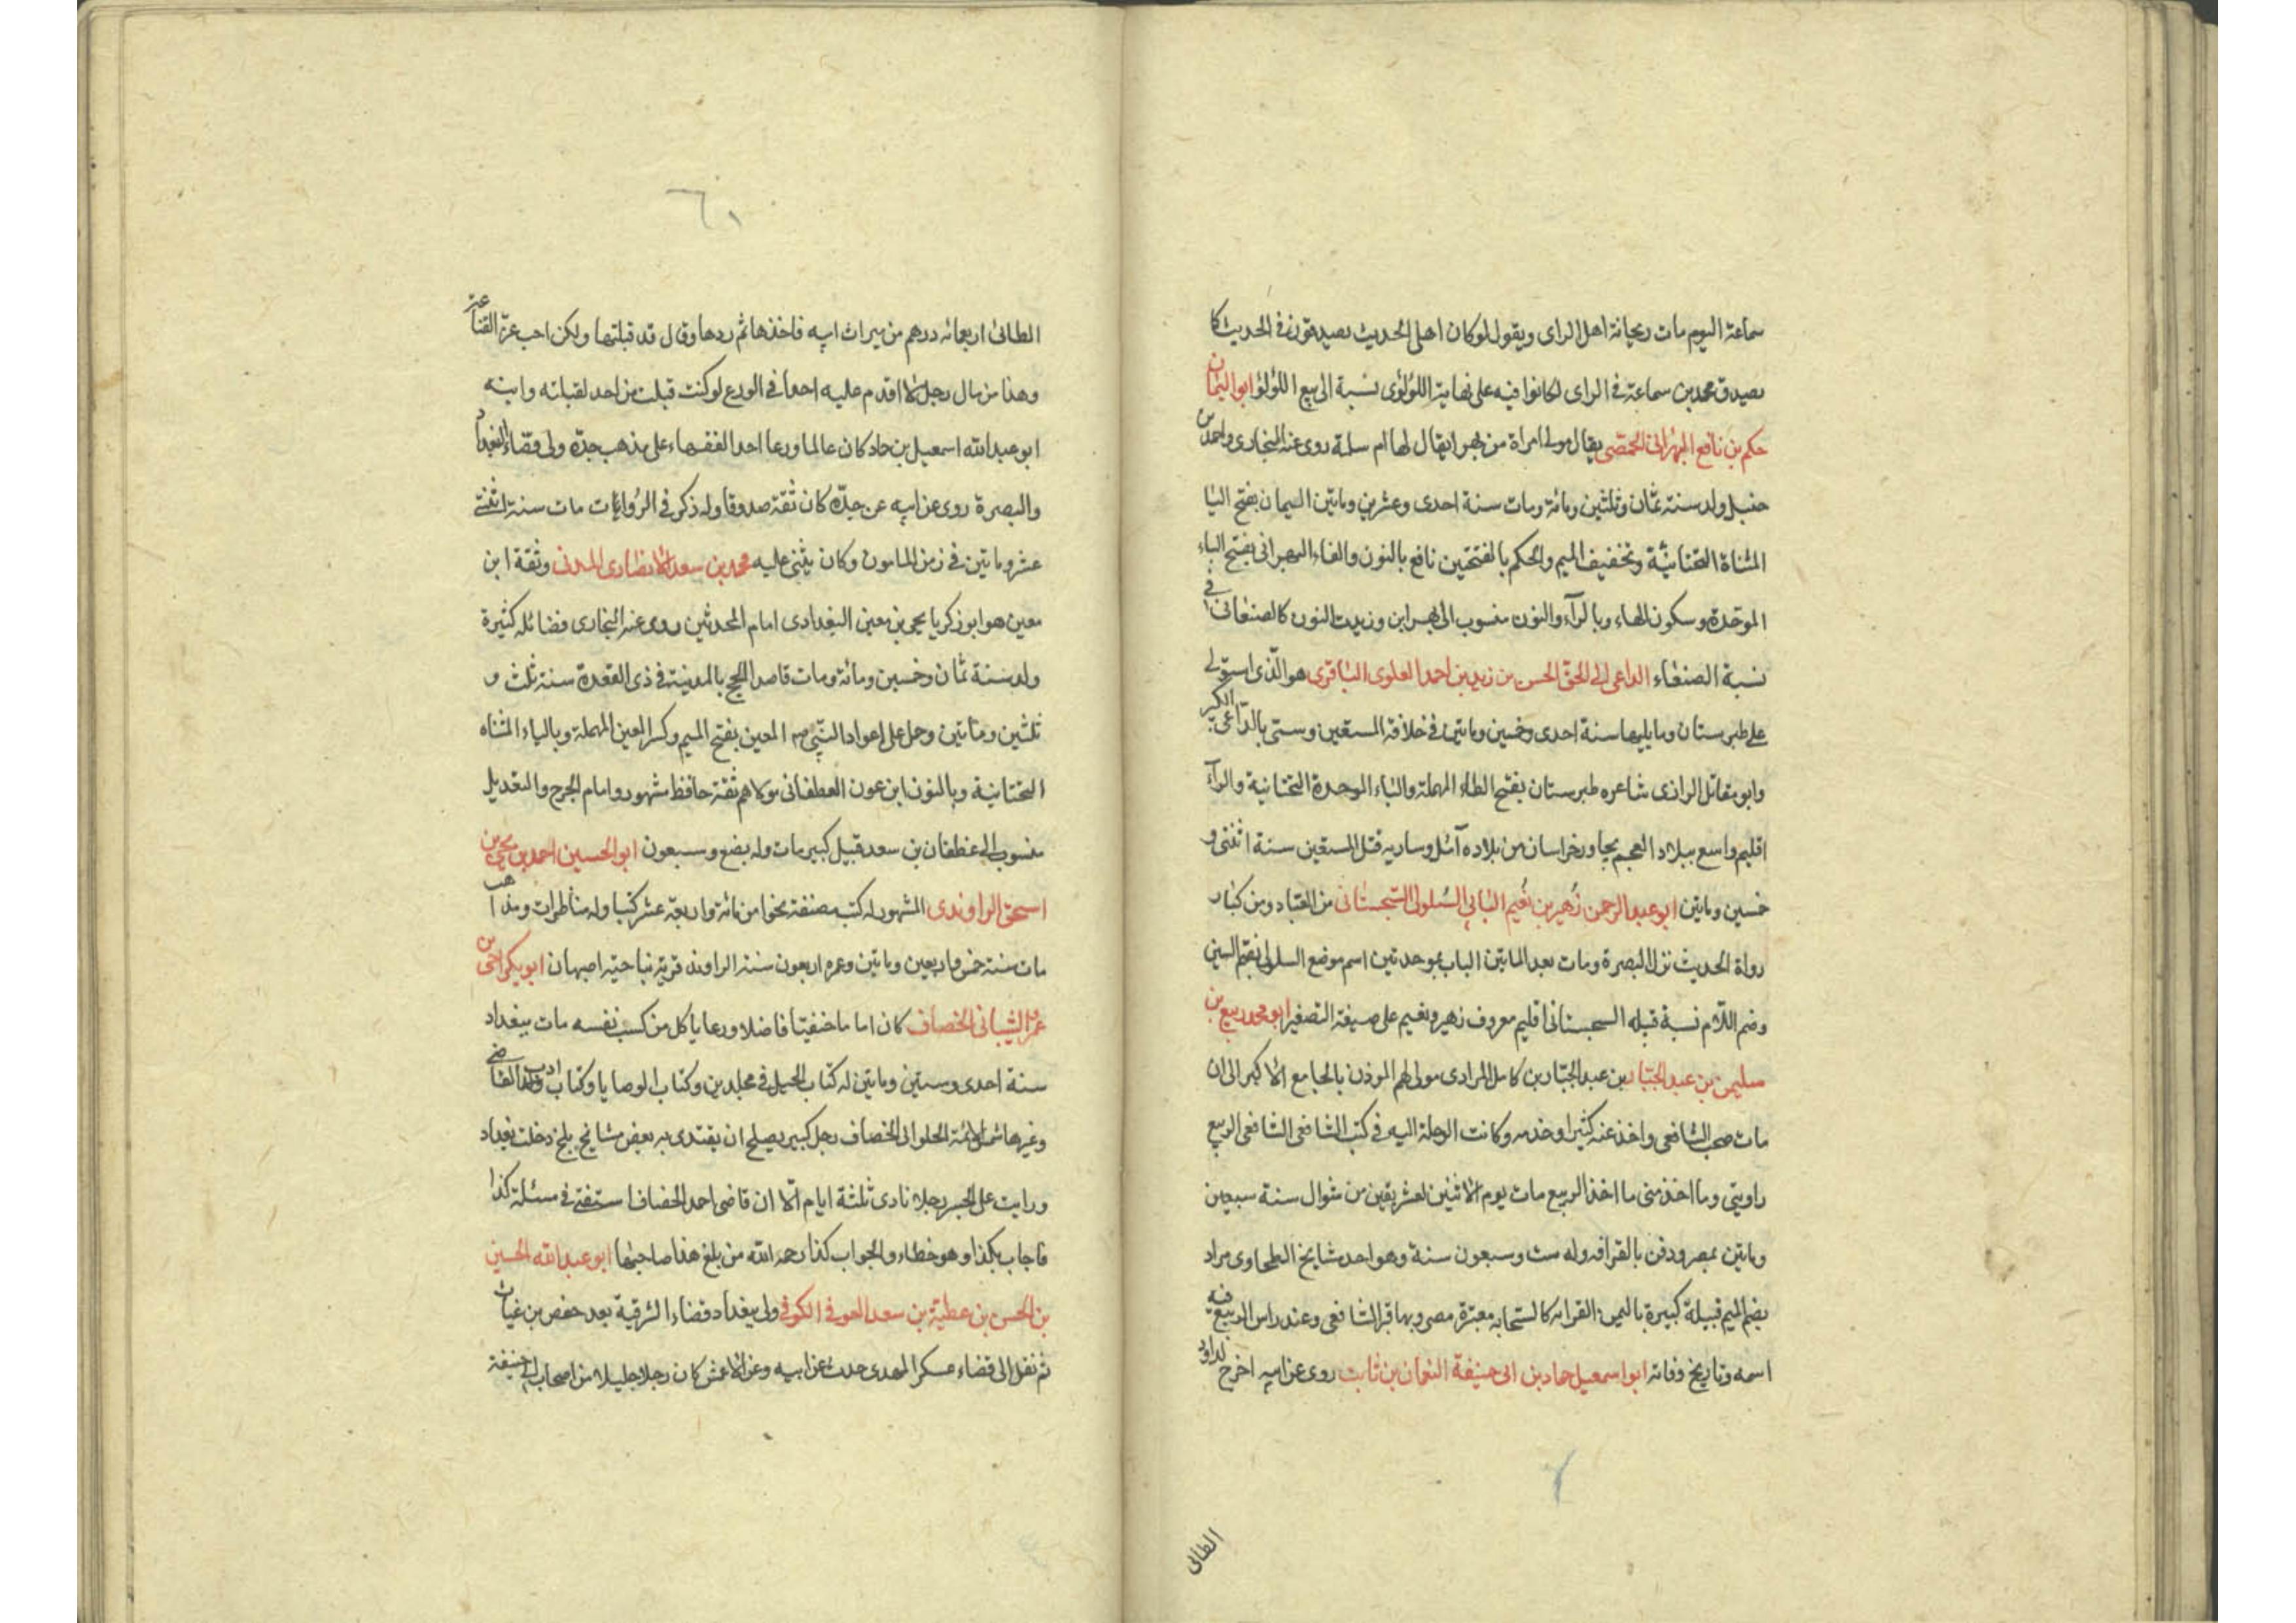 سماعة اليوم مات ريحانة اهل الراى ويقول لو كان اهل الحديث يصدقون فى الحديث كا
يصدق محمد بن سماعة فى الراى لكانوا فيه على نهاية اللؤلؤى نسبة الى بيع اللؤلؤ ابو اليمان
حكم بن نافع البهرانى الحمصى يقال مولى امراة من بهرا يقال لها ام سلمة روى عنه البخارى واحمد بن
حنبل ولد سنة ثمان وثلثين ومائة ومات سنة احدى وعشرين وماتين اليمان بفتح اليا
المثناة التحتانية وتخفيف الميم والحكم بالفتحتين نافع بالنون والفاء البهرانى بفتح الباء
الموحدة وسكون الهاء وبالرآء والنون منسوب الى بهرا بن وزيدت النون كالصنعانى فى
نسبة الصنعاء الداعى الى الحق الحسن بن زيد بن احمد العلوى الباقرى هو الذى استولى
على طبرستان وما يليها سنة احدى وخمسين وماتين فى خلافة المستعين وسمى بالداعى الكبر
وابو مقاتل الرازى شاعره طبرستان بفتح الطاء المهملة والباء الموحدة التحتانية والرآء
اقليم واسع ببلاد العجم يجاور خراسان من بلاده آمل وساريه قتل المستعين سنة اثنتى و
خمسين وماتين ابو عبد الرحمن زهير بن نعيم البابى السلولى السجستانى من العباد ومن كبار
رواة الحديث نزل البصرة ومات بعد الماتين الباب بموحدتين اسم موضع السلولى بفتح السين
وضم اللام نسبة قبله السجستانى اقليم معروف زهير ونعيم على صيغة التصغير ابو محمد ربيع بن
سليمن بن عبد الجبار بن عبد الجبار بن كامل المرادى مولى لهم الموذن بالجامع الاكبر الى ان
مات صحب الشافعى واخذ عنه كثيرا وخدمه وكانت الرحلة اليه فى كتب الشافعى الشافعى الربيع
راويتى وما اخذ منى ما اخذ الربيع مات يوم الاثنين لعشر بقين من شوال سنة سبعين
وماتين بمصر ودفن بالقرافه وله ست وسبعون سنة وهو احد مشايخ الطحاوى مراد
بضم الميم قبيلة كبيرة باليمن القرافه كالسحابه مقبرة مصر وبها قبر الشافعى وعند راس الربيع فيه
اسمه وتاريخ وفاته ابو اسمعيل حماد بن ابى حنيفة النعمان بن ثابت روى عن ابيه اخرج لداود
الطائى
٦١
الطائى اربعمائه درهم من ميراث ابيه فاخذها ثم ردها وقال قد قبلتها ولكن احب عزة القناعة
وهذا من مال رجل لا اقدم عليه احدا فى الورع لو كنت قبلت من احد لقبلته وابنه
ابو عبد الله اسمعيل بن حماد كان عالما ورعا احد الفقهاء على مذهب جده ولى قضاء البغداد
والبصرة روى عن ابيه عن جده كان ثقة صدوقا وله ذكر فى الروايات مات سنة اثنتى
عشر وماتين فى زمن المامون وكان يثنى عليه محمد بن سعد الانصارى المدنى وثقة ابن
معين هو ابو زكريا يحيى بن معين البغدادى امام المحدثين روى عنه البخارى فضائله كثيرة
ولد سنة ثمان وخمسين ومائة ومات قاصد الحج بالمدينة فى ذى القعدة سنة ثلث و
ثلثين ومأتين وحمل على اعواد النبى صم المعين بفتح الميم وكسر العين المهملة وبالياء المثناه
التحتانية وبالنون ابن عون الغطفانى مولاهم ثقة حافظ مشهور وامام الجرح والتعديل
منسوب الى غطفان بن سعد قبيل كبير مات وله بضع وسبعون ابو الحسين احمد بن يحيى بن
اسحق الراوندى المشهور له كتب مصنفة نحوا من مائة واربعة عشر كتبا وله مناظرات ومذاهب
مات سنة خمس واربعين وماتين وعمره اربعون سنة الراوند قرية بناحية اصبهان ابو بكر احمد بن
عمر الشيبانى الخصاف كان اماما حنفيا فاضلا ورعا ياكل من كسب نفسه مات ببغداد
سنة احدى وستين وماتين له كتاب الحيل فى مجلدين وكتاب الوصايا وكتاب ادب القاضى
وغيرها شمس الائمة الحلوانى الخصاف رجل كبير يصلح ان يقتدى به بعض مشايخ بلخ دخلت بغداد
ورايت على الجسر رجلا نادى ثلثة ايام الا ان قاضى احمد الخصاف استفتى فى مسئلة كذا
فاجاب بكذا وهو خطاء والجواب كذا رحمه الله من بلغ هذا صاحبها ابو عبد الله الحسين
بن الحسن بن عطية بن سعد العوفى الكوفى ولى ببغداد قضاء الشرقية بعد حفص بن غياث
ثم نقل الى قضاء عسكر المهدى حدث عن ابيه وعن الاعمش كان رجلا جليلا من اصحاب ابى حنيفة